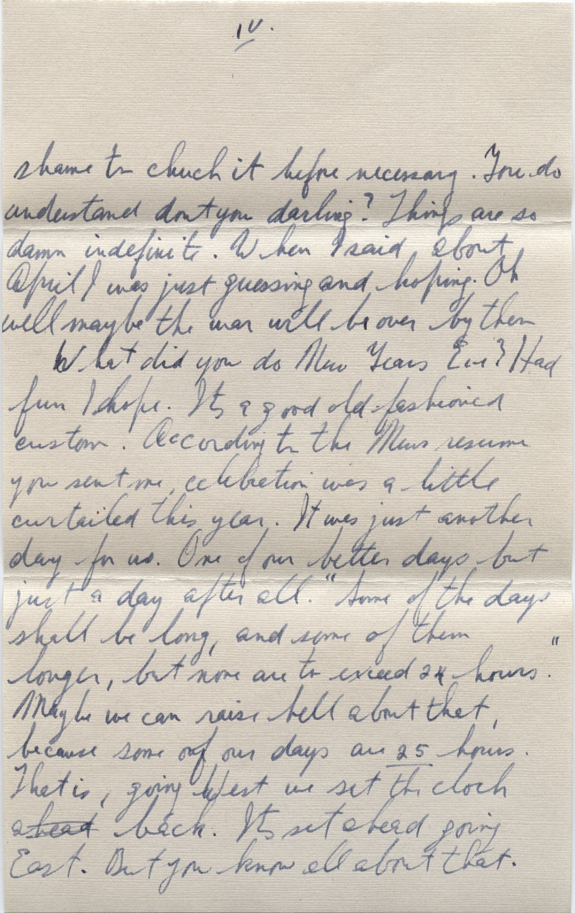 IV.
shame to chuck it before necessary. You do
understand dont you darling? Things are so
damn indefinite. When I said about
April I was just guessing and hoping. Oh
well maybe the war will be over by then
What did you do New Years Eve? Had
fun I hope. Its a good old fashioned
custom. According to the News resume
you sent me, celebration was a little
curtailed this year. It was just another
day for us. One of our better days but
just a day after all. "Some of the days
shall be long, and some of them
longer, but none are to exceed 24 hours."
Maybe we can raise hell about that,
because some of our days are 25 hours.
That is, going West we set the clock
ahead back. Its set ahead going
East. But you know all about that.